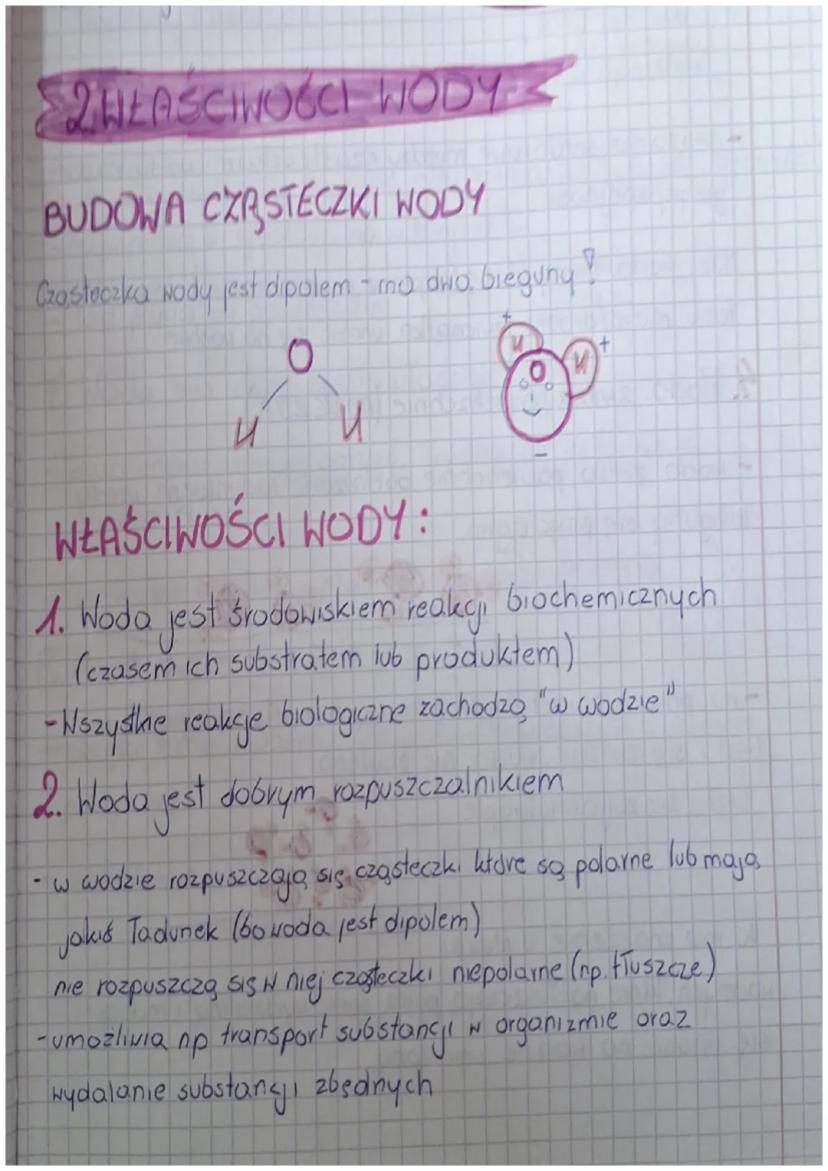 2 WŁAŚCIWOŚCI WODY
BUDOWA CZĄSTECZKI WODY
Cząsteczka wody jest dipolem - ma dwa bieguny!
O
H H
+ H H +
O
-
WŁAŚCIWOŚCI WODY:
1. Woda jest środowiskiem reakcji biochemicznych
(czasem ich substratem lub produktem)
- Wszystkie reakcje biologiczne zachodzą "w wodzie"
2. Woda jest dobrym rozpuszczalnikiem
- w wodzie rozpuszczają się cząsteczki które są polarne lub mają
jakiś ładunek (bo woda jest dipolem)
nie rozpuszczą się w niej cząsteczki niepolarne (np. tłuszcze)
- umożliwia np transport substancji w organizmie oraz
wydalanie substancji zbędnych